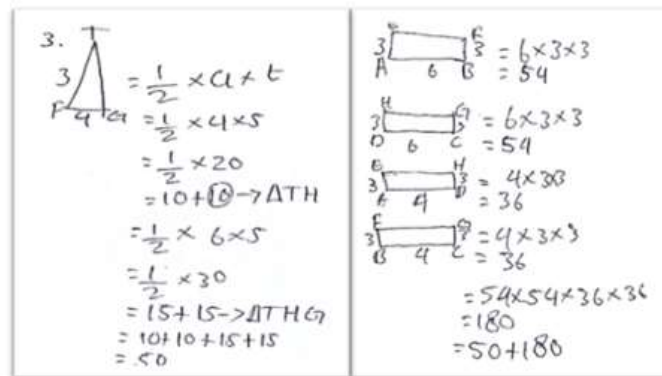 3.
T
3
F 4 G
= 1/2 × a × t
= 1/2 × 4 × 5
= 1/2 × 20
= 10 + 10 → ΔTH
= 1/2 × 6 × 5
= 1/2 × 30
= 15 + 15 → ΔTHG
= 10 + 10 + 15 + 15
= 50
F
3 3
A 6 B
= 6 × 3 × 3
= 54
H G
3 3
D 6 C
= 6 × 3 × 3
= 54
E H
3 3
A 4 D
= 4 × 3 × 3
= 36
F G
3 3
B 4 C
= 4 × 3 × 3
= 36
= 54 × 54 × 36 × 36
= 180
= 50 + 180